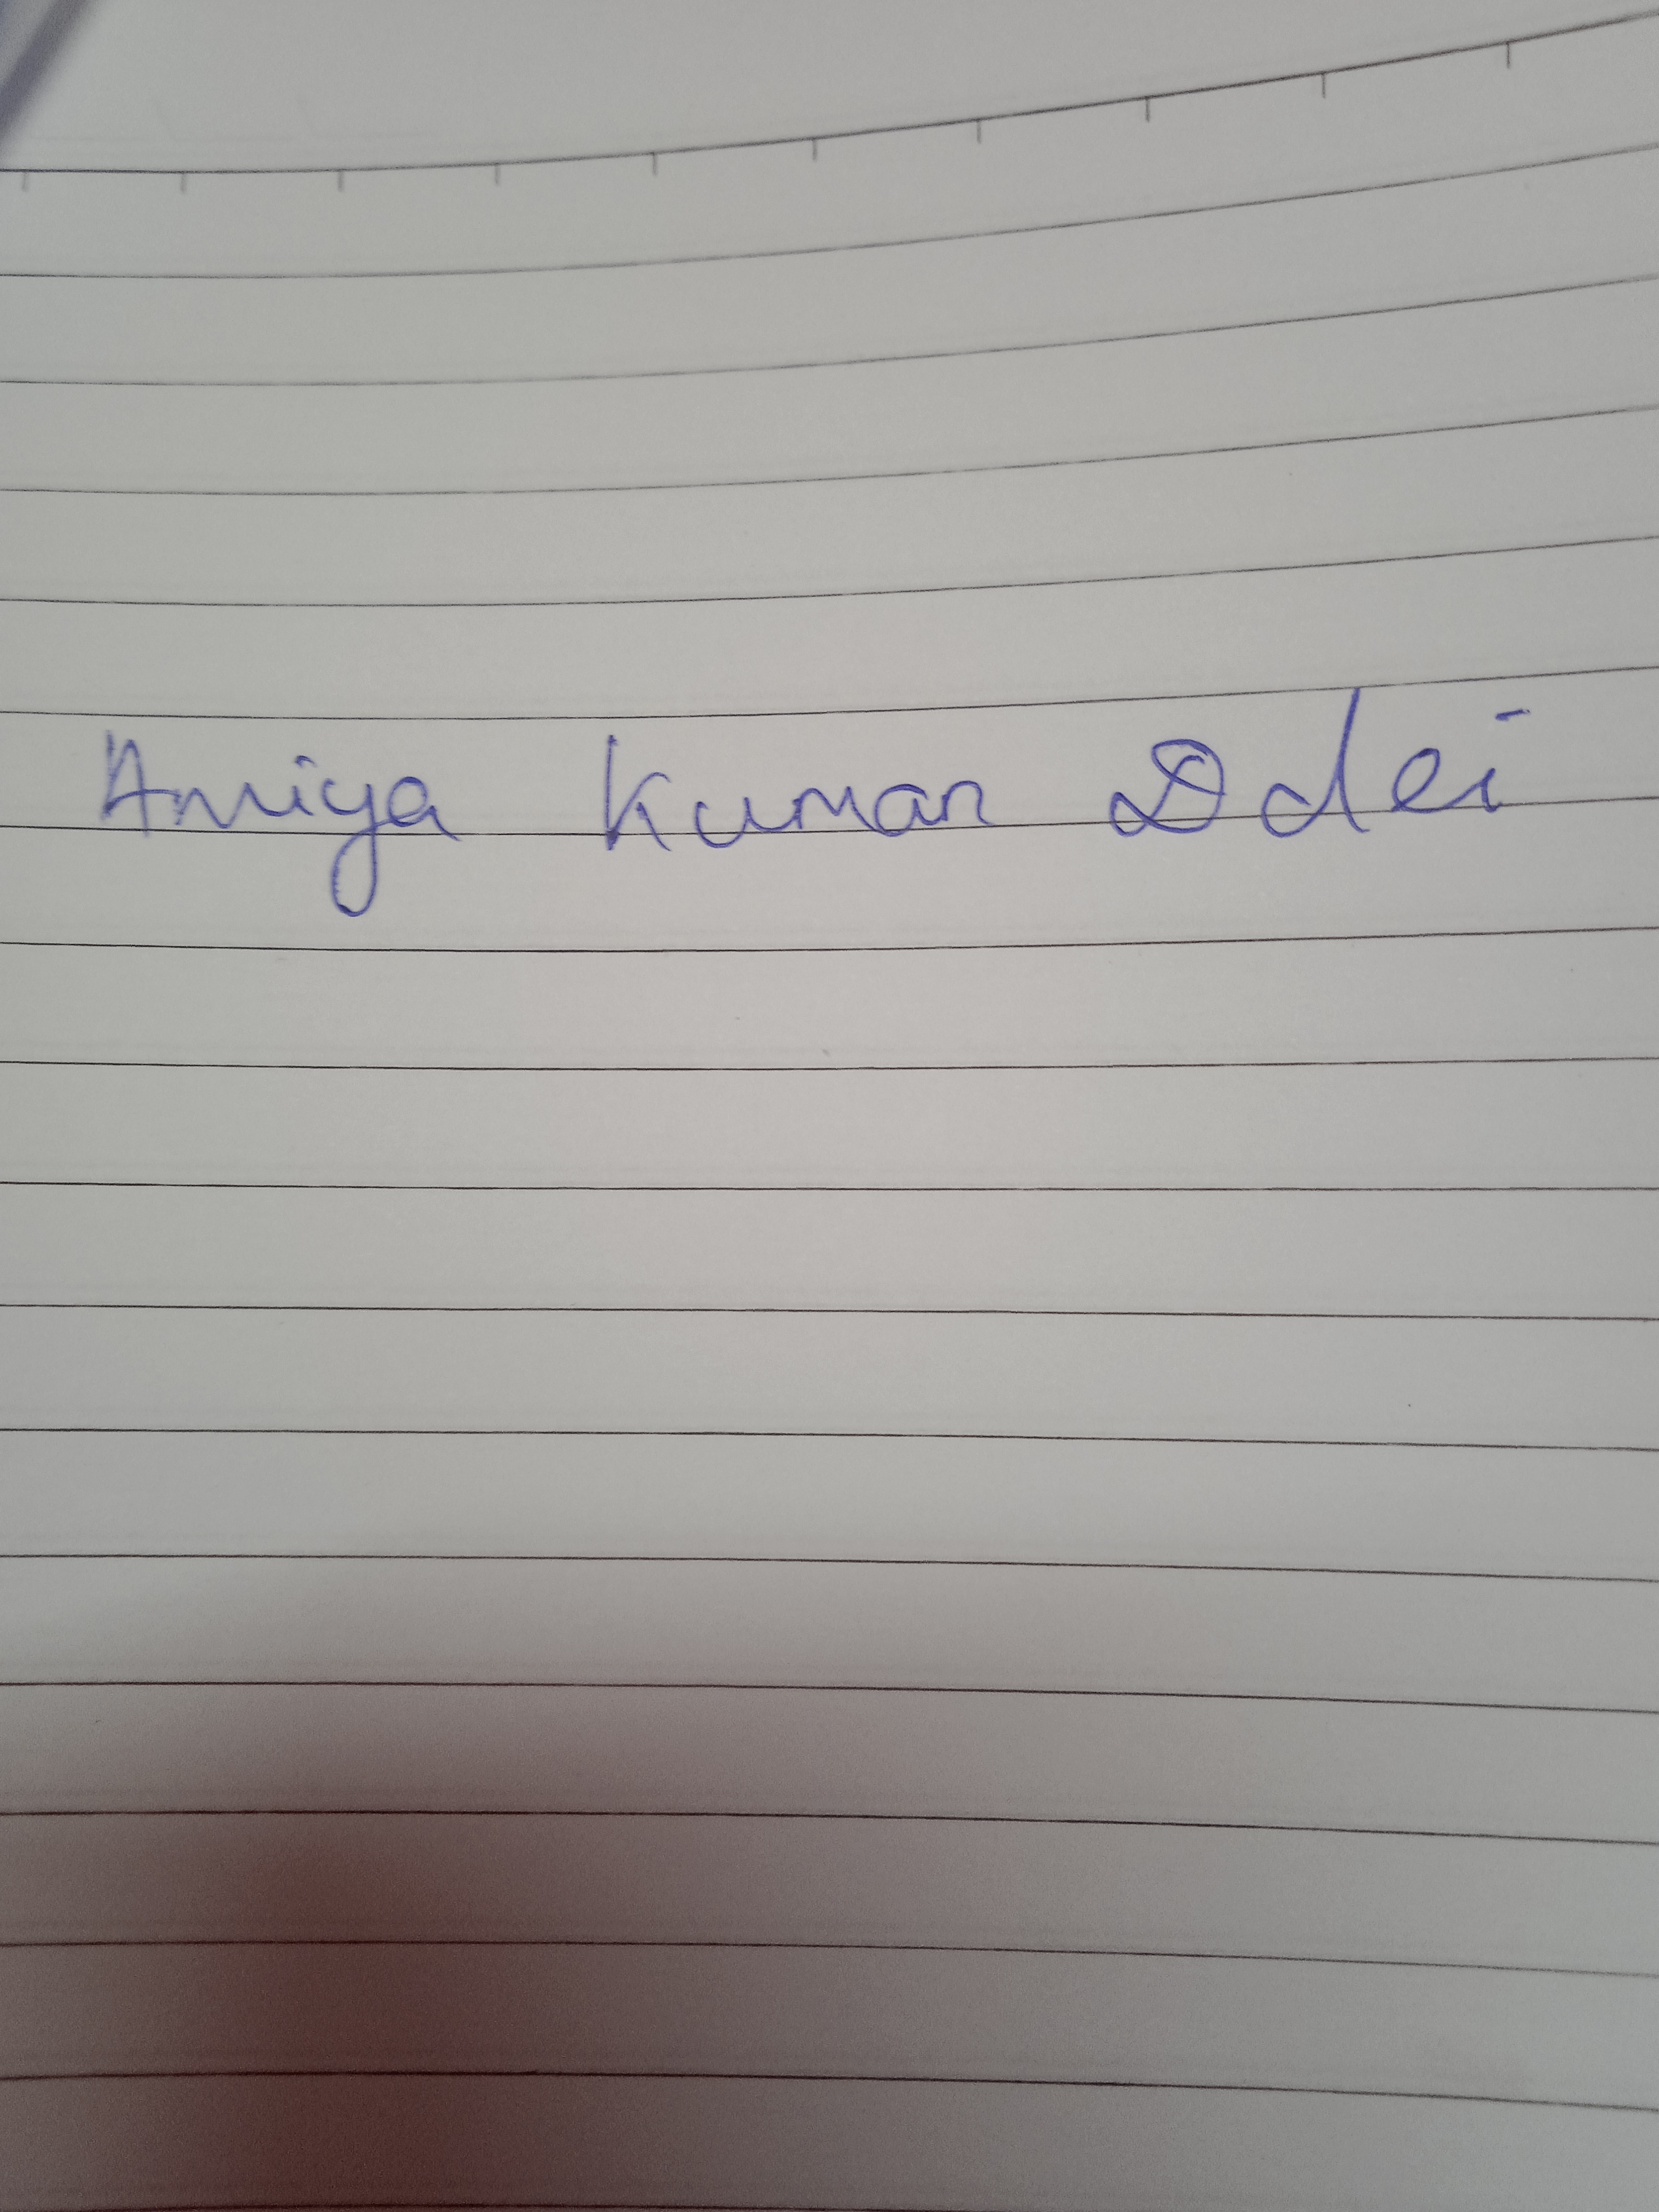 Amiya Kumar Ddei